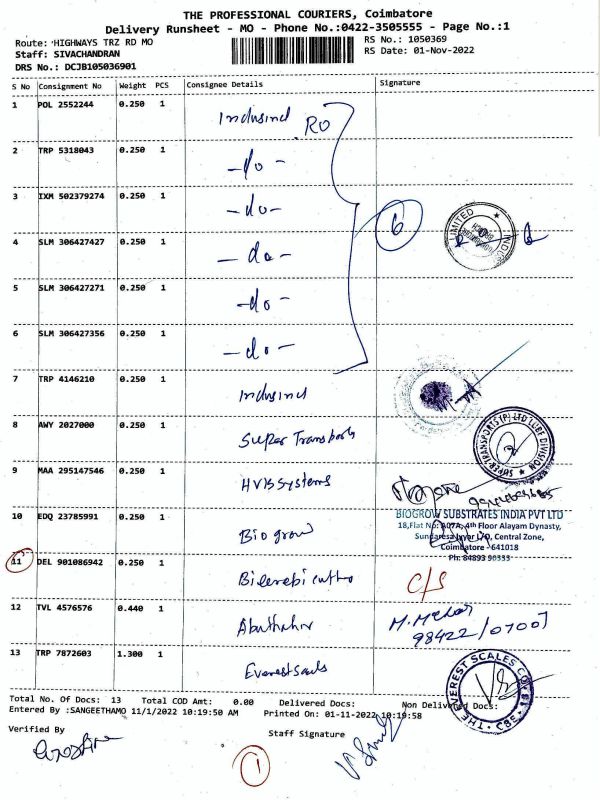 THE PROFESSIONAL COURIERS, Coimbatore
Delivery Runsheet - MO - Phone No.:0422-3505555 - Page No.:1
Route: HIGHWAYS TRZ RD MO RS No.: 1050369
Staff: SIVACHANDRAN RS Date: 01-Nov-2022
DRS No.: DCJB105036901
S No Consignment No Weight PCS Consignee Details Signature
1 POL 2552244 0.250 1 Indusind RO
2 TRP 5318043 0.250 1 -do-
3 IXM 502379274 0.250 1 -do-
6
LIMITED
4 SLM 306427427 0.250 1 -do-
5 SLM 306427271 0.250 1 -do-
6 SLM 306427356 0.250 1 -do-
7 TRP 4146210 0.250 1 Indusind
8 AWY 2027000 0.250 1 Super Transports
SUPER TRANSPORTS (P) LTD CUBE DIVISION
9 MAA 295147546 0.250 1 HVB Systems
10 EDQ 23785991 0.250 1 Biogrow
BIOGROW SUBSTRATES INDIA PVT LTD
18,Flat No: A07A, 4th Floor Alayam Dynasty,
Sundaresa Iyer L/O, Central Zone,
Coimbatore - 641018
Ph: 84893 90333
11 DEL 901086942 0.250 1 C/S
12 TVL 4576576 0.440 1
98422/07007
13 TRP 7872603 1.300 1 Everest Scales
THE EVEREST SCALES CO. CBE
Total No. Of Docs: 13 Total COD Amt: 0.00 Delivered Docs: Non Delivered Docs:
Entered By :SANGEETHAMO 11/1/2022 10:19:50 AM Printed On: 01-11-2022 10:19:58
Verified By Staff Signature
1